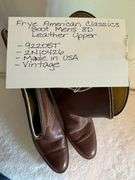 Frye American Classics
Boot Mens 8D
Leather Upper
- 9220ST
- 2N10426
- Made in USA
- Vintage